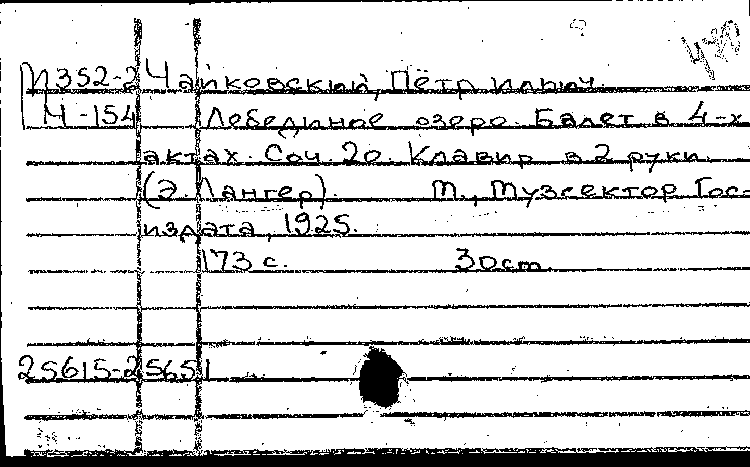 430
М352-2 Чайковский, Пётр Ильич.
Ч-154 Лебединое озеро. Балет в 4-х
актах. Соч. 20. Клавир в 2 руки.
(Э. Лангер). М., Музсектор Гос-
издата, 1925.
173 с. 30cm.
25615-25651